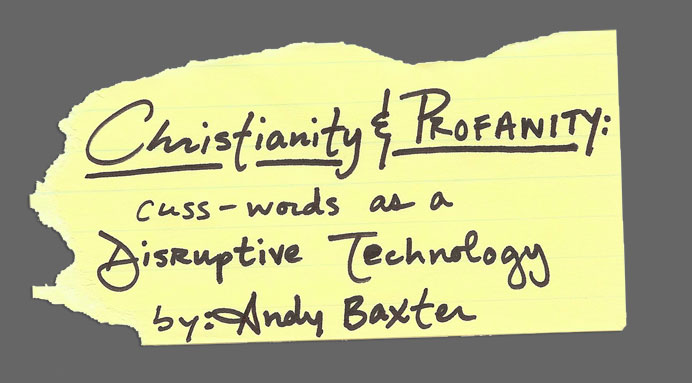 Christianity & PROFANITY:
cuss-words as a
Disruptive Technology
by: Andy Baxter